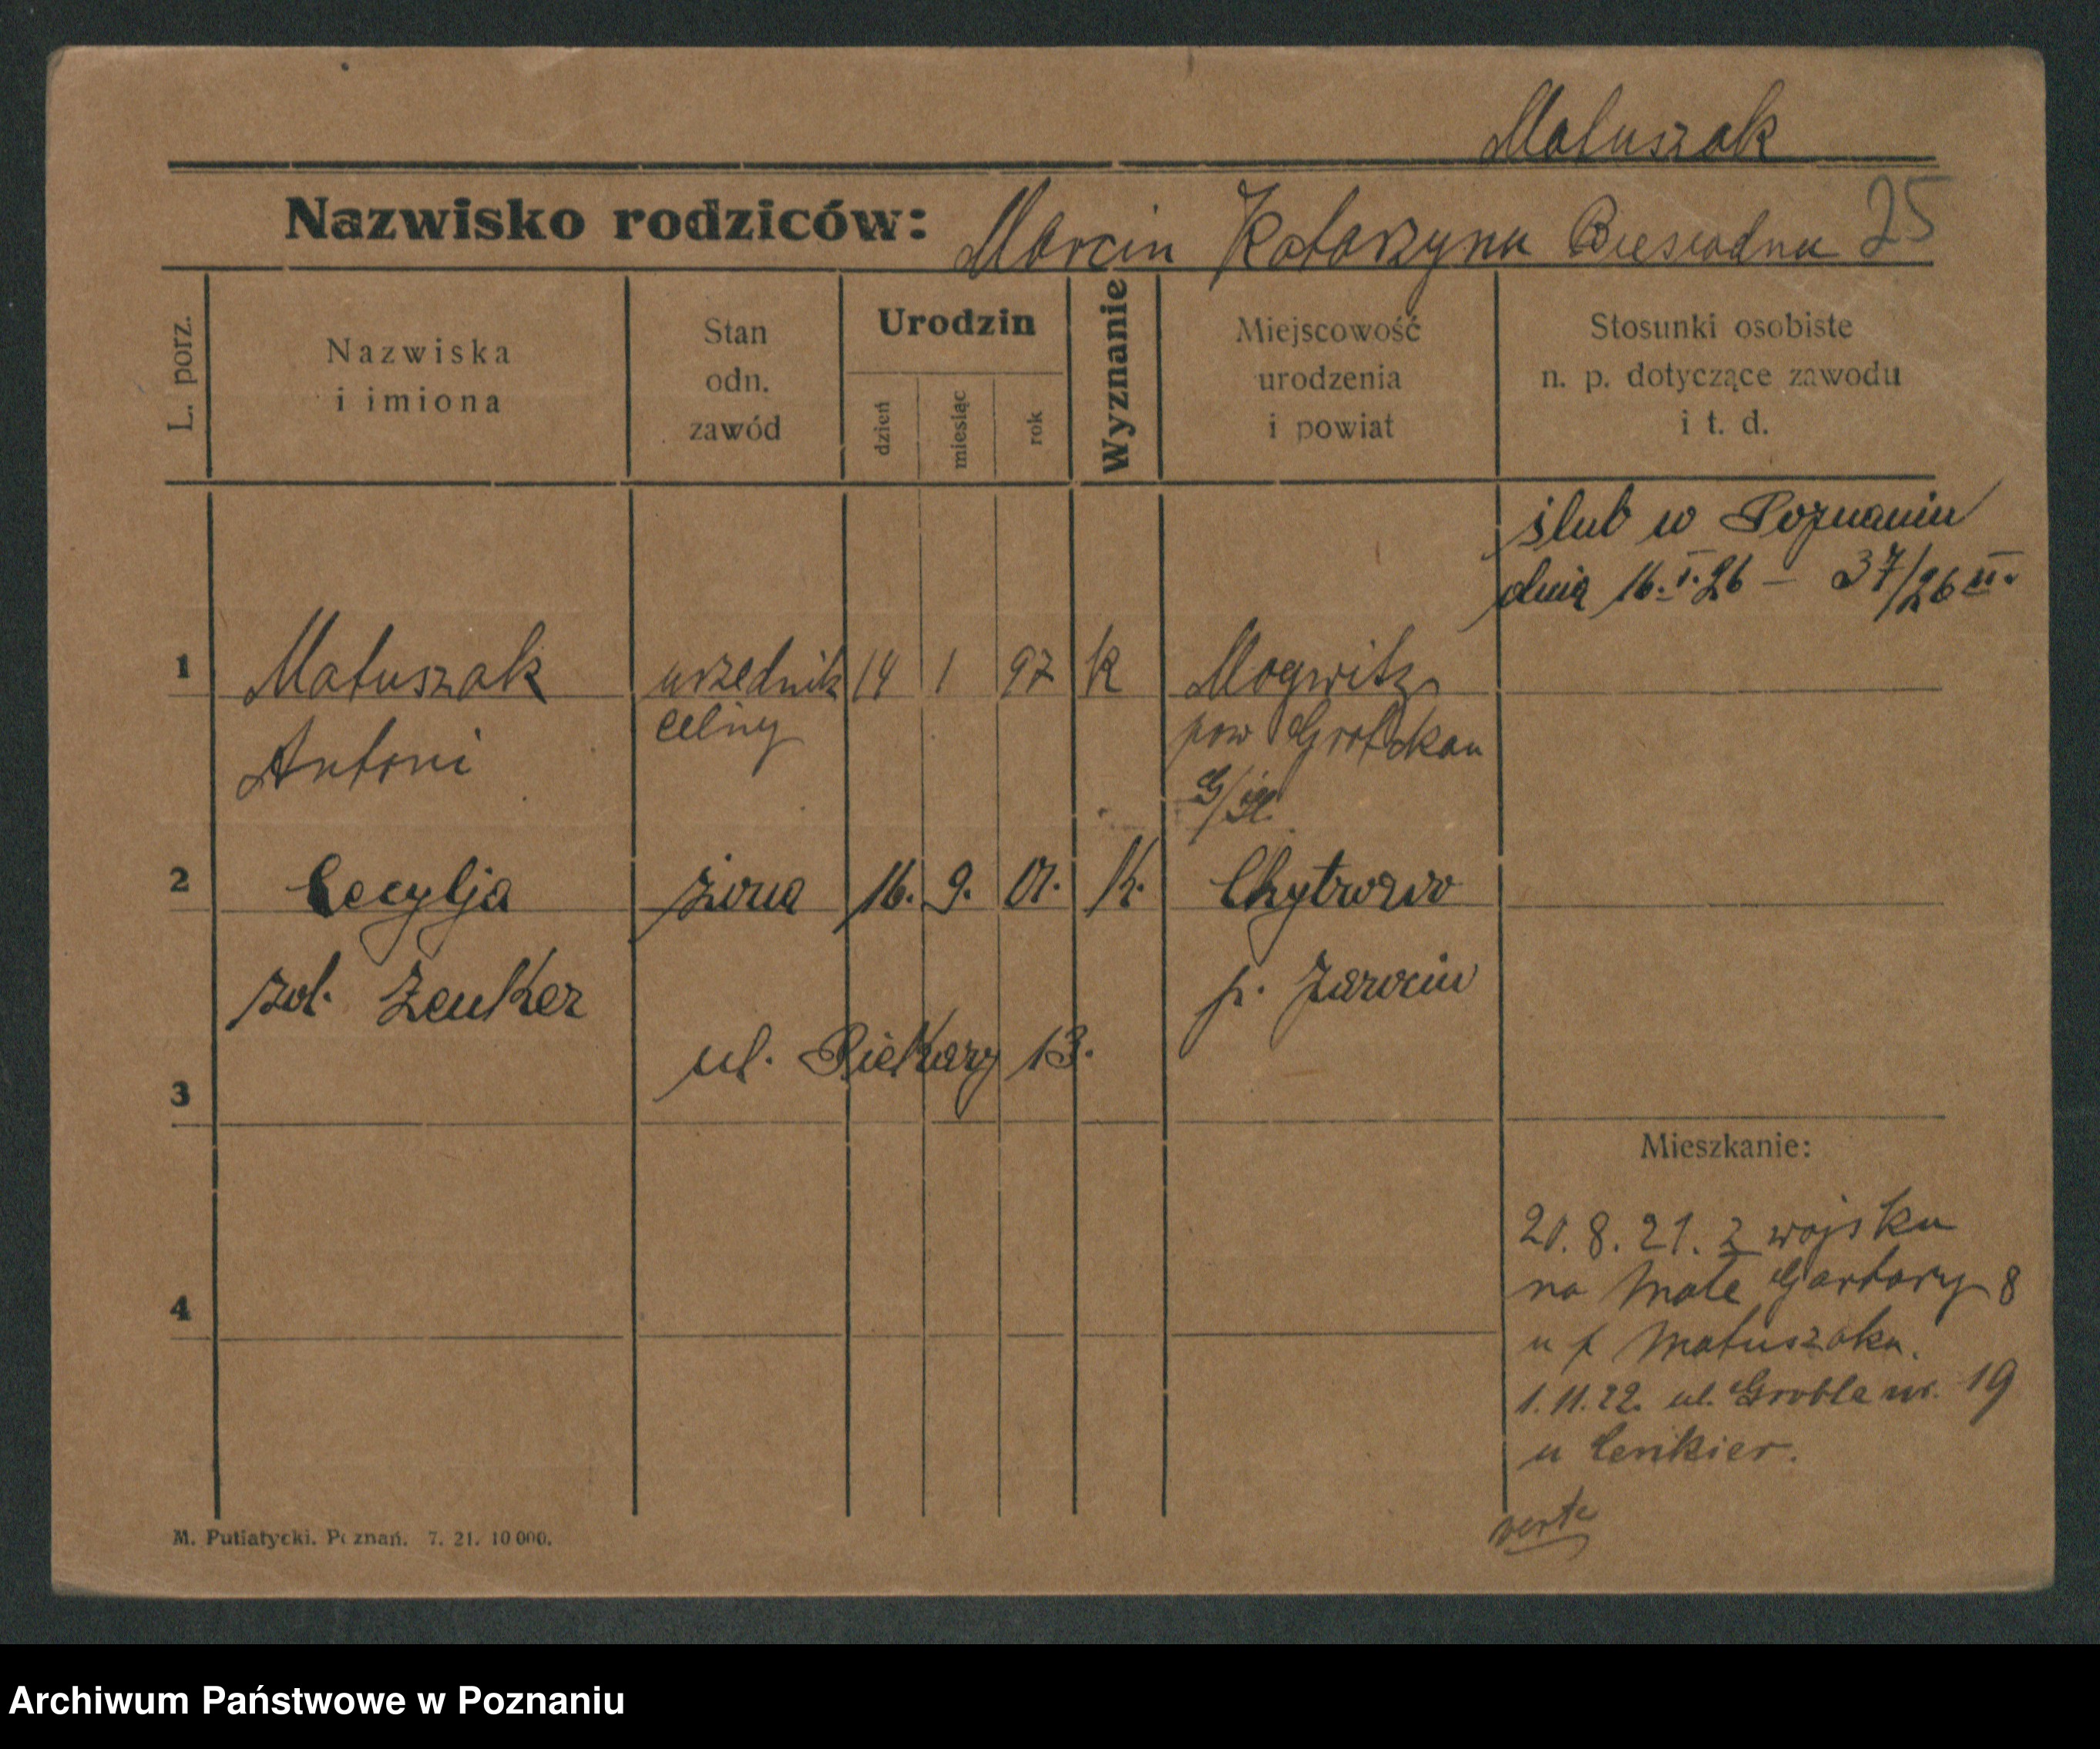 Matuszak
Nazwisko rodziców: Marcin Katarzyna Biesiadna 25
L. porz.
Nazwiska
i imiona
Stan
odn.
zawód
Urodzin
dzień
miesiąc
rok
Wyznanie
Miejscowość
urodzenia
i powiat
Stosunki osobiste
n. p. dotyczące zawodu
i t. d.
ślub w Poznaniu
dnia 16.I.26 – 37/26 II.
1 Matuszak urzednik 14 1 97 k Mogwitz
Antoni celny pow Grottkau
G/Sl.
2 Cecylja żona 16. 9. 01. k. Chytrowo
zol. Zenker p. Jarocin
ul. Piekary 13.
3
Mieszkanie:
20. 8. 21. z wojska
na Małe Garbary 8
u f Matuszaka.
4
1. 11. 22. ul. Grobla nr. 19
u Cenkier.
verte
M. Putiatycki. Poznań. 7. 21. 10 000.
Archiwum Państwowe w Poznaniu